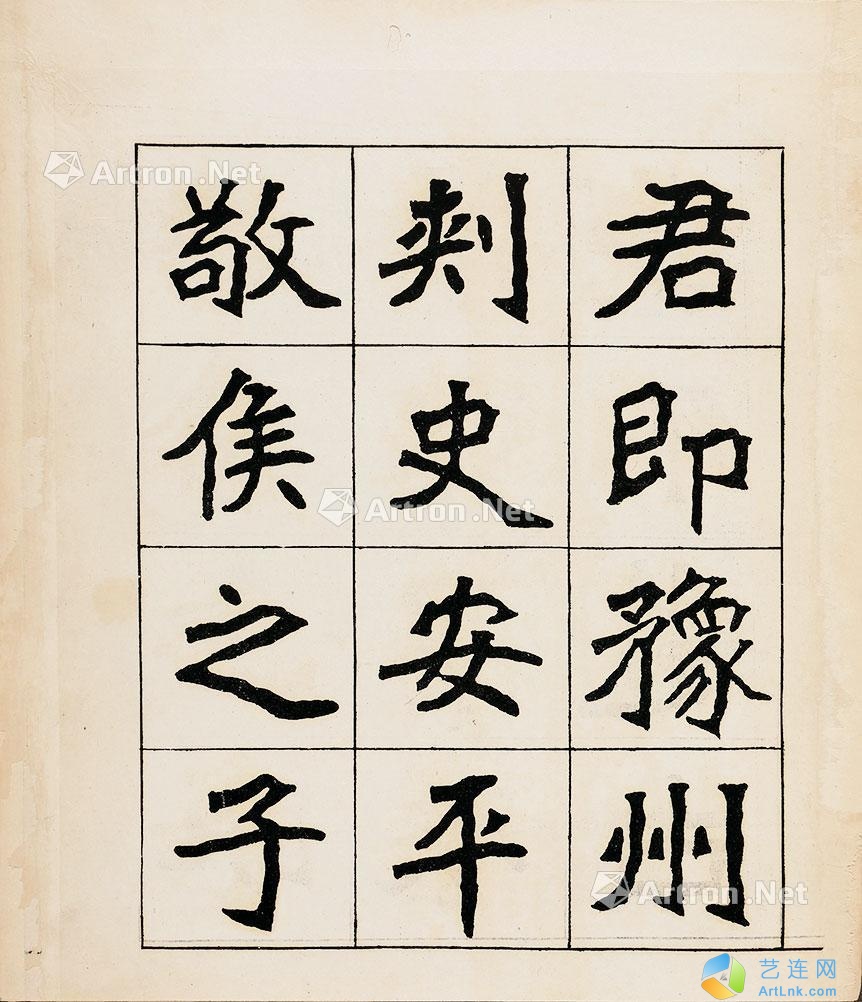 君即豫州
刾史安平
敬侯之子
Artron.Net
Artron.Net
Artron.Net
艺连网
ArtLnk.com